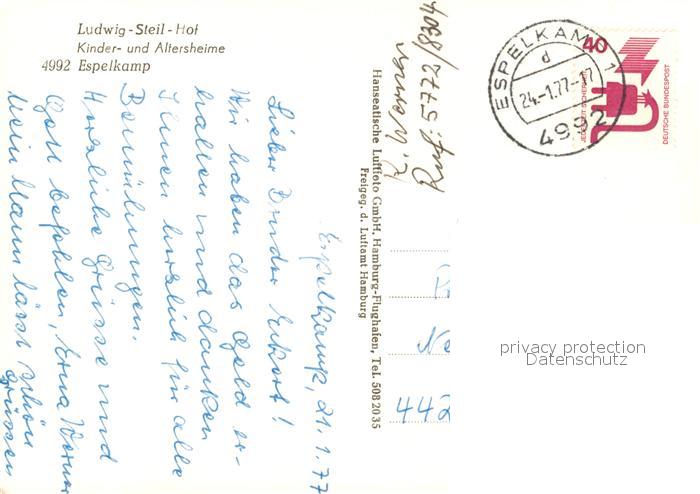 Ludwig-Steil-Hof
Kinder- und Altersheime
4992 Espelkamp
Espelkamp, 21.1.77
Lieber Bruder Eckart!
Wir haben das Geld er-
halten und danken
Ihnen herzlich für alle
Bemühungen.
Herzliche Grüsse und
Gott befohlen, Erna Werner
Mein Mann lässt schön
grüssen
Hanseatische Luftfoto GmbH, Hamburg-Flughafen, Tel. 5082035
Freigeg. d. Luftamt Hamburg
Ne
442
ESPELKAMP 1
d
24.-1.77-17
4992
40
JEDERZEIT SICHERHEIT
DEUTSCHE BUNDESPOST
privacy protection
Datenschutz